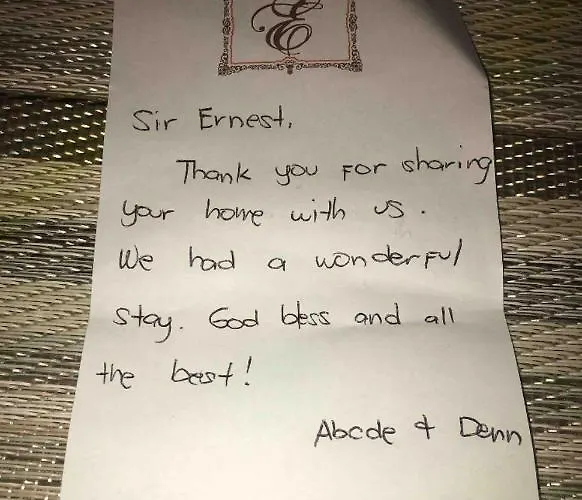 E
Sir Ernest,
Thank you for sharing
your home with us.
We had a wonderful
stay. God bless and all
the best!
Abcde & Denn